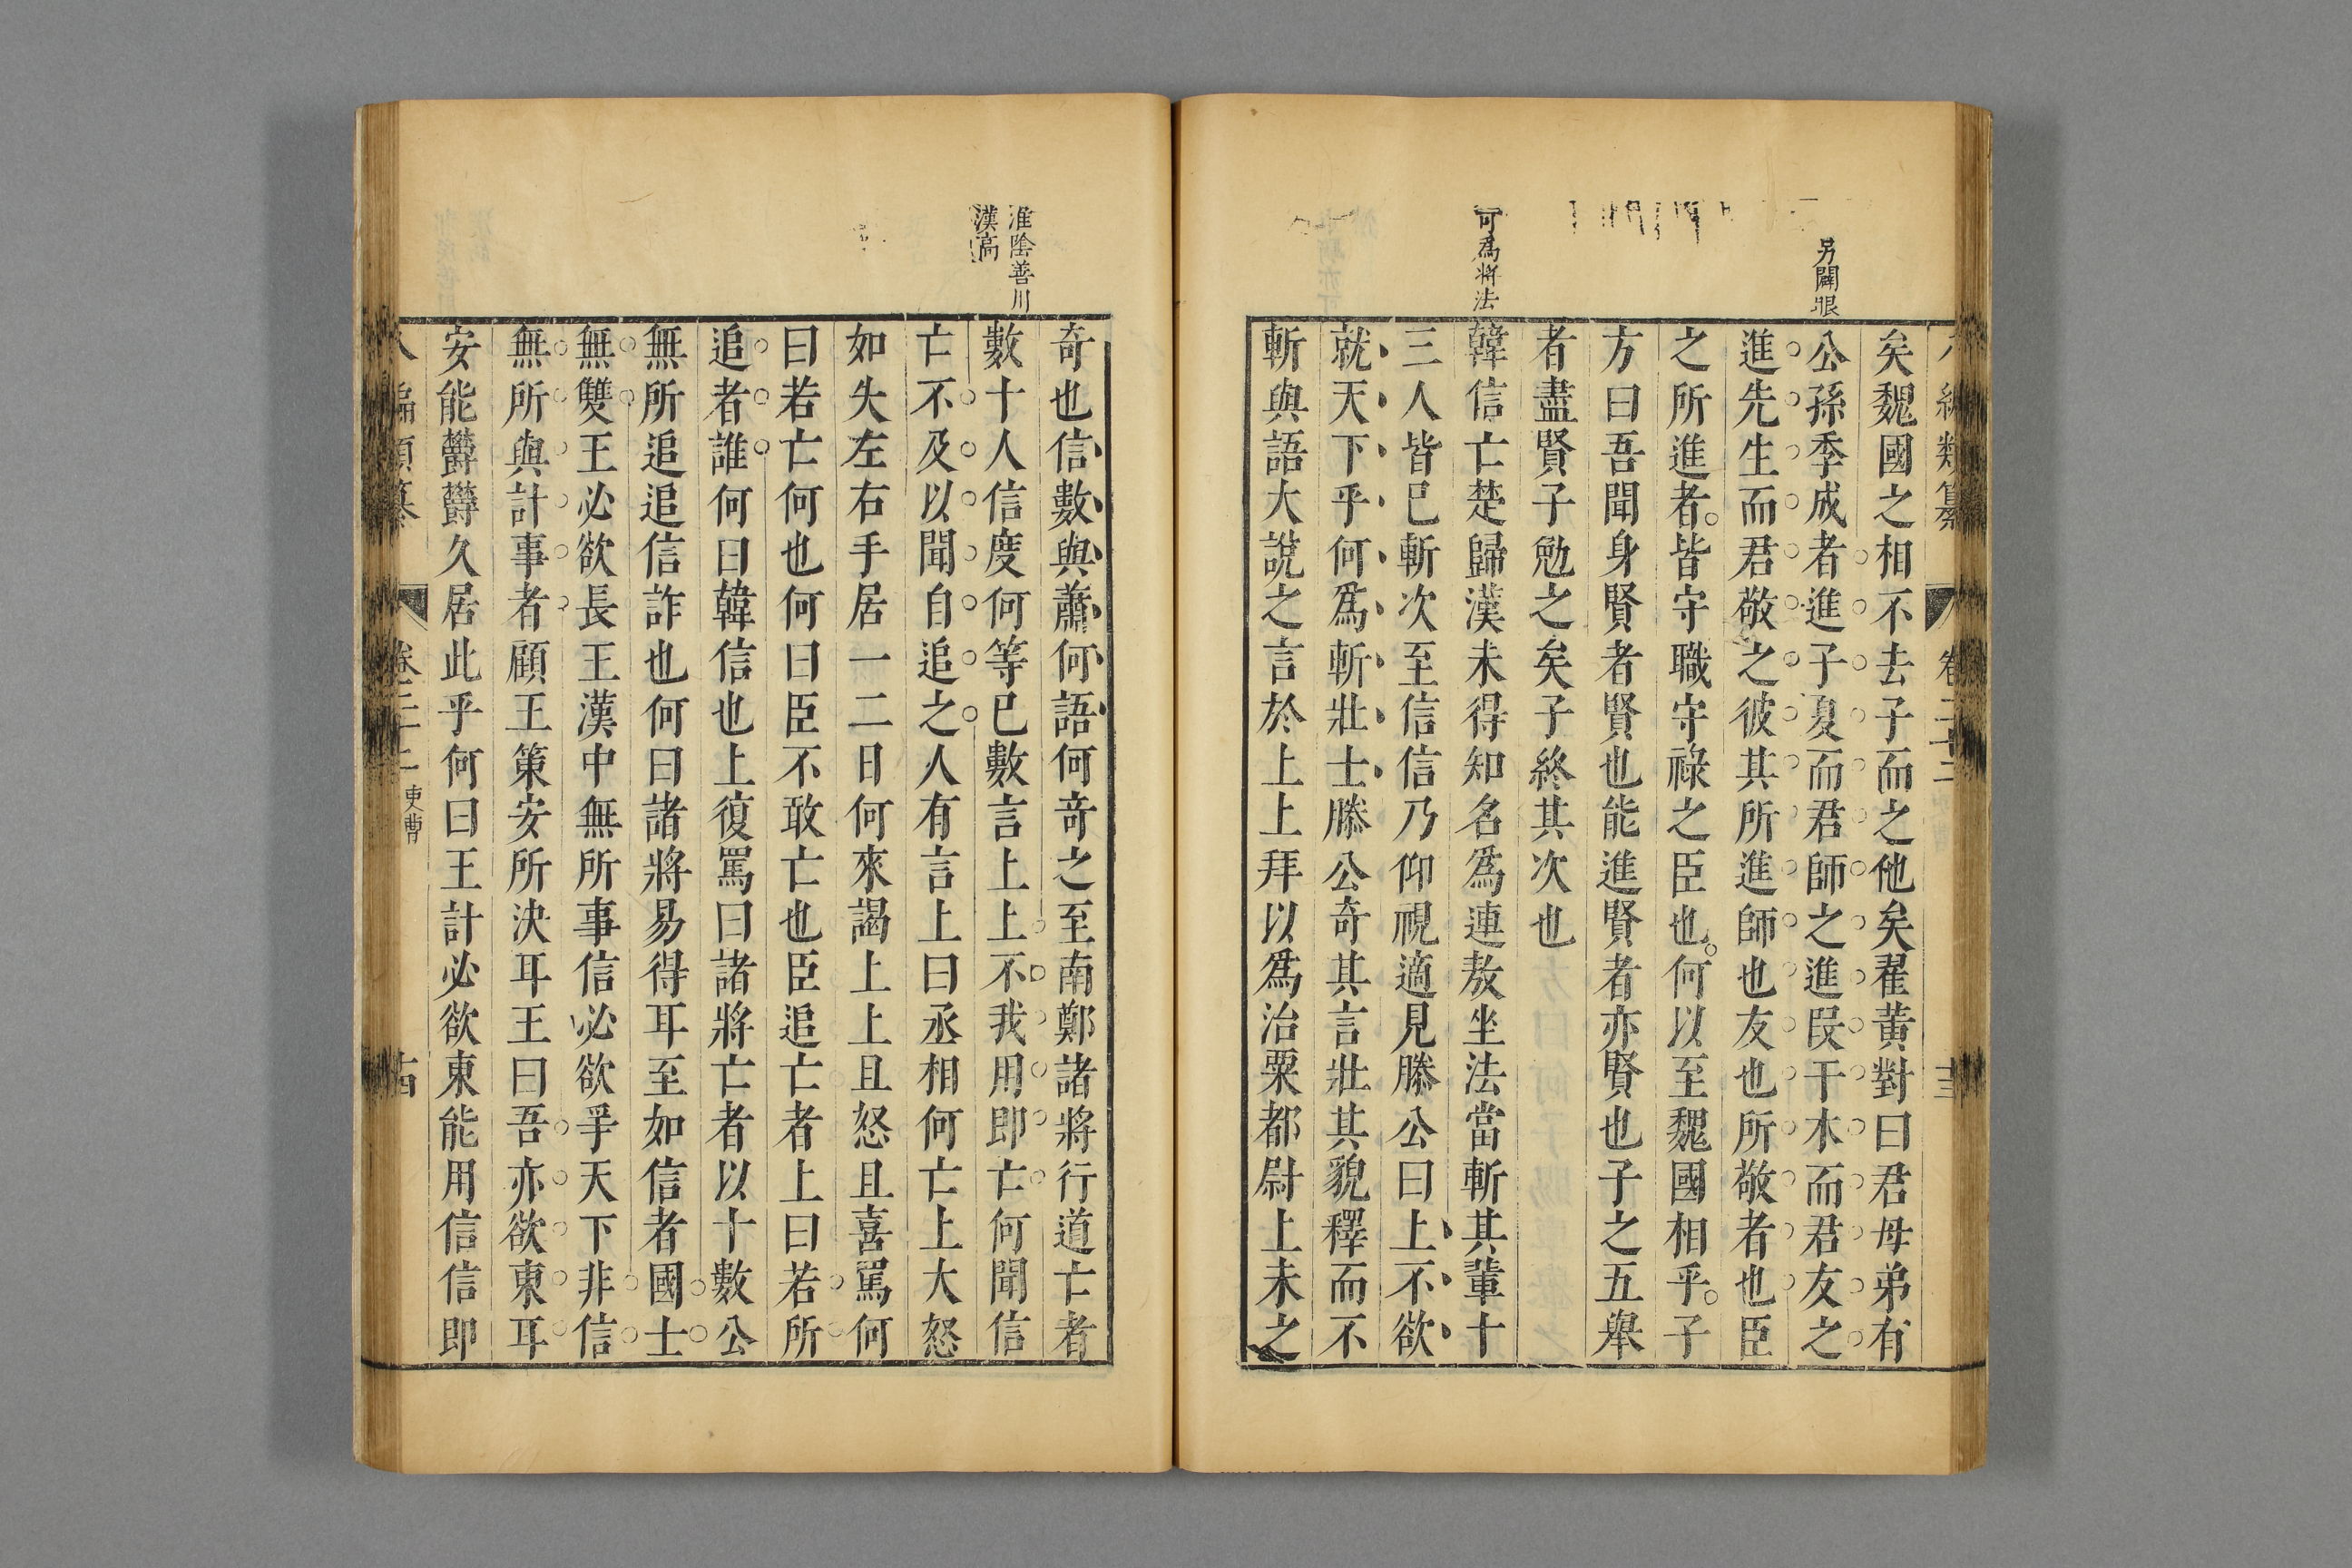 八編類纂 卷二十二 十三
另闢眼
矣魏國之相不去子而之他矣翟黃對曰君母弟有
公孫季成者進子夏而君師之進段干木而君友之
進先生而君敬之彼其所進師也友也所敬者也臣
之所進者皆守職守祿之臣也何以至魏國相乎子
方曰吾聞身賢者賢也能進賢者亦賢也子之五舉
者盡賢子勉之矣子終其次也
可為將法
韓信亡楚歸漢未得知名為連敖坐法當斬其輩十
三人皆已斬次至信信乃仰視適見滕公曰上不欲
就天下乎何為斬壯士滕公奇其言壯其貌釋而不
斬與語大說之言於上上拜以為治粟都尉上未之
奇也信數與蕭何語何奇之至南鄭諸將行道亡者
淮陰善川
漢高
數十人信度何等已數言上上不我用即亡何聞信
亡不及以聞自追之人有言上曰丞相何亡上大怒
如失左右手居一二日何來謁上上且怒且喜罵何
曰若亡何也何曰臣不敢亡也臣追亡者上曰若所
追者誰何曰韓信也上復罵曰諸將亡者以十數公
無所追追信詐也何曰諸將易得耳至如信者國士
無雙王必欲長王漢中無所事信必欲爭天下非信
無所與計事者顧王策安所決耳王曰吾亦欲東耳
安能鬱鬱久居此乎何曰王計必欲東能用信信即
八編類纂 卷二十二 吏曹 十四